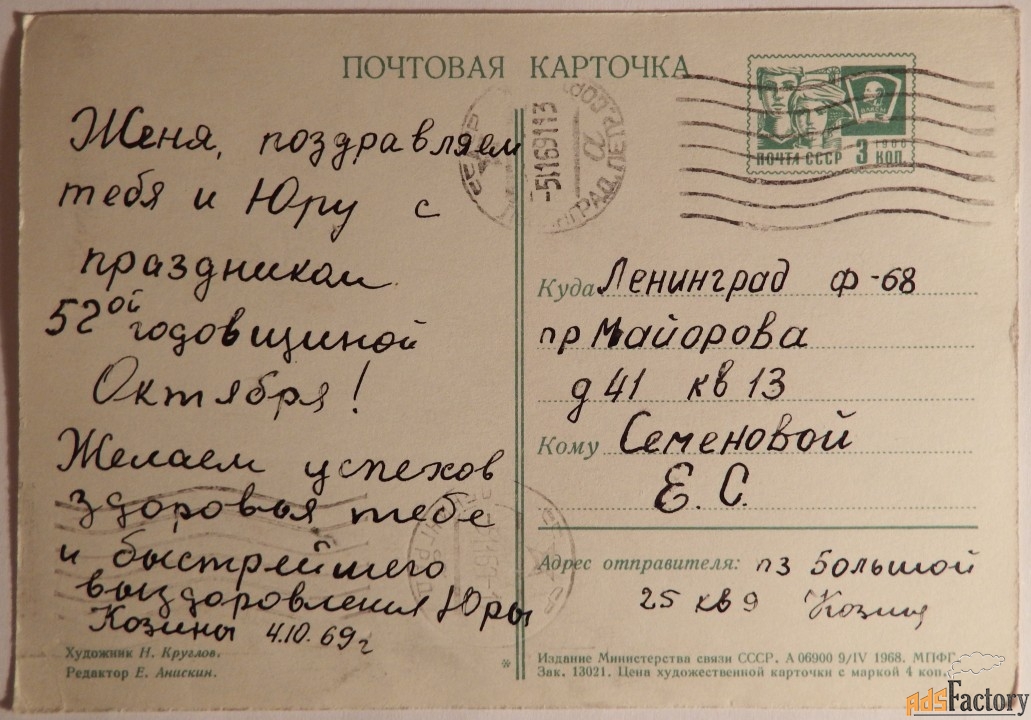 ПОЧТОВАЯ КАРТОЧКА
ПОЧТА СССР 3 КОП.
1966
-51169113
Женя, поздравляем
тебя и Юру с
праздником
52ой годовщиной
Октября!
Желаем успехов
здоровья тебе
и быстрейшего
выздоровления Юры
Козины 4.10.69г
Художник Н. Круглов.
Редактор Е. Анискин.
*
Куда Ленинград Ф-68
пр Майорова
д 41 кв 13
Кому Семеновой
Е.С.
Адрес отправителя: п3 Большой
25 кв 9
Издание Министерства связи СССР. А 06900 9/IV 1968. МПФГ.
Зак. 13021. Цена художественной карточки с маркой 4 коп.
adsFactory